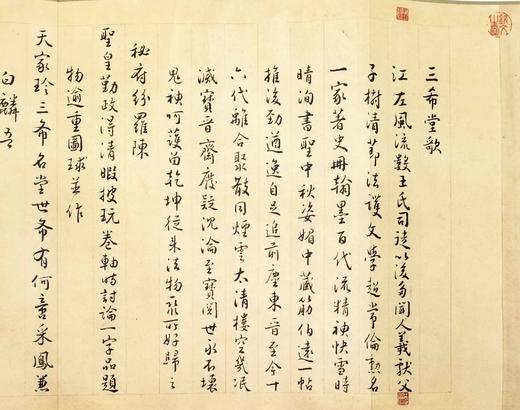 三希堂歌
江左風流數王氏司徒以後多聞人羲獻父
子樹清節法護文學超常倫勳名
一家著史冊翰墨百代流精神快雪時
晴洵書聖中秋姿媚中藏筋伯遠一帖
推後勁遒逸自足追前塵東晉至今十
六代離合聚散同煙雲太清樓空幾泯
滅寶晉齋廢疑沉淪至寶閱世永不壞
鬼神呵護留乾坤從來法物聚所好歸之
秘府紛羅陳
聖皇勤政得清暇披玩卷軸時討論一字品題
物逾重圖球並作
天家珍三希名堂世希有何童采鳳兼
白麟吾